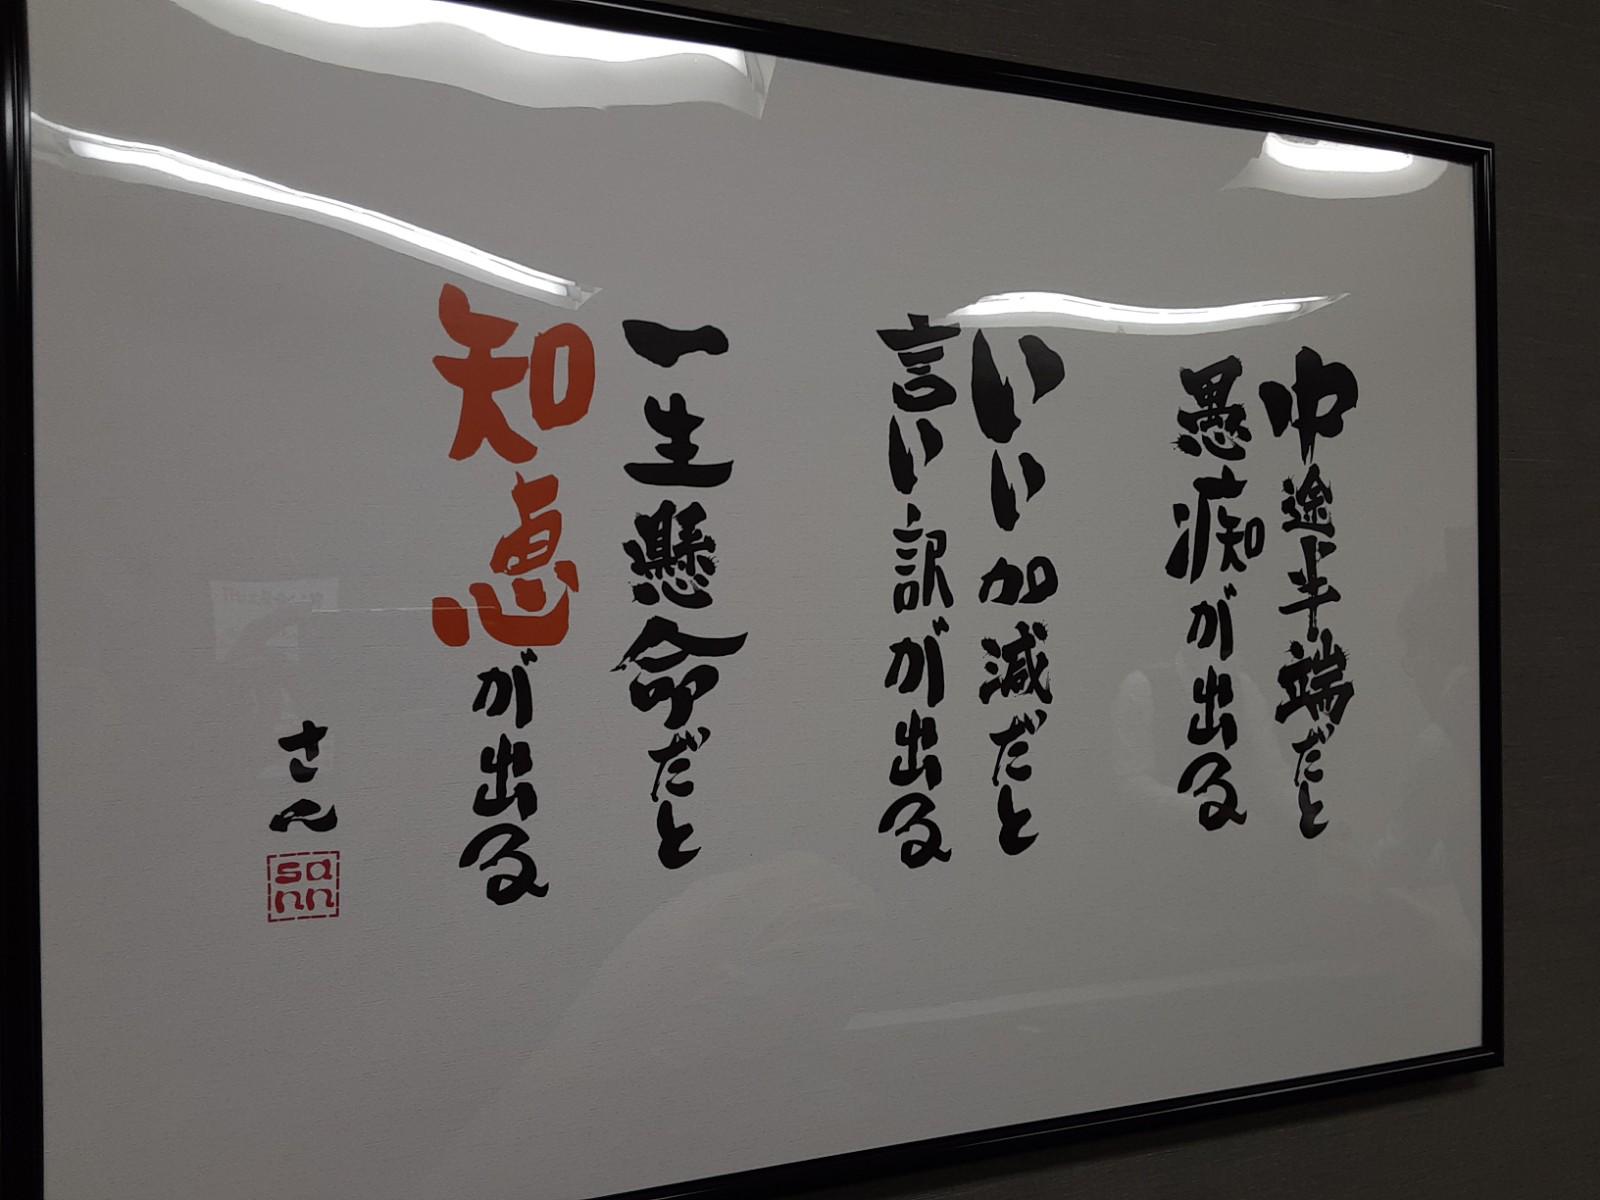 中途半端だと
愚痴が出る
いい加減だと
言い訳が出る
一生懸命だと
知恵が出る
さん
sa
nn